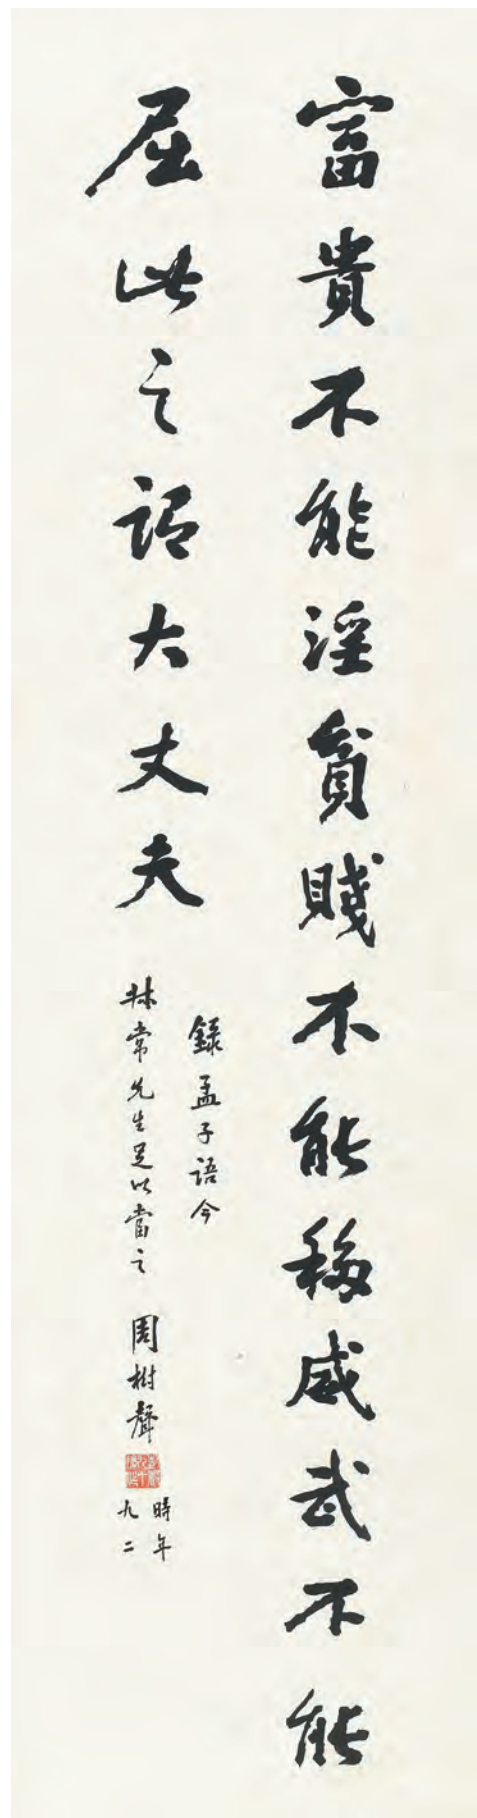 富貴不能淫貧賤不能移威武不能
屈此之謂大丈夫
錄孟子語今
林常先生足以當之 周樹聲
時年
九二